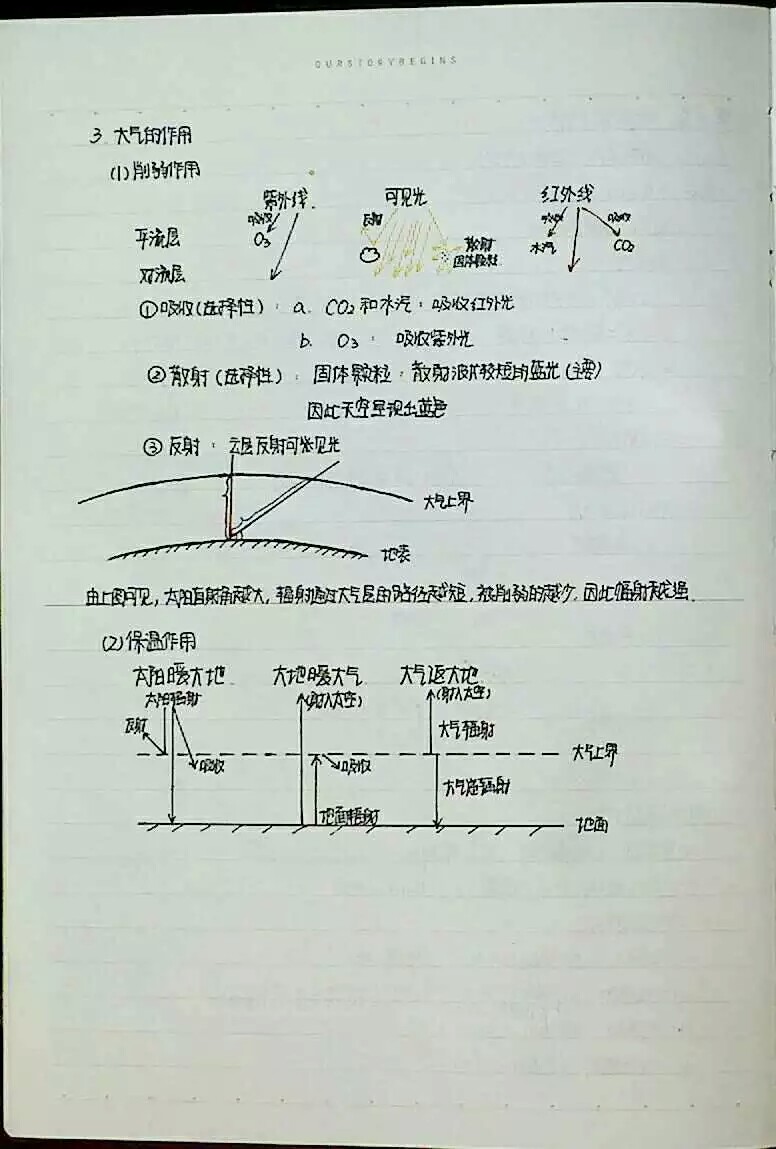 OURSTORYBEGINS
3. 大气的作用
(1) 削弱作用
紫外线. 可见光 红外线
吸收 反射 吸收 吸收
平流层 O₃ 散射 水汽 CO₂
固体颗粒
对流层
①吸收(选择性): a. CO₂和水汽: 吸收红外光
b. O₃: 吸收紫外光
②散射(选择性): 固体颗粒: 散射波长较短的蓝光(主要)
因此天空呈现出蓝色
③反射: 云层反射可见光
大气上界
地表
由上图可见, 太阳直射角越大, 辐射通过大气层的路径越短, 被削弱的越少, 因此辐射越强.
(2) 保温作用
太阳暖大地 大地暖大气 大气返大地
太阳辐射 (射入太空) (射入太空)
反射 大气辐射
吸收 吸收 大气上界
大气逆辐射
地面辐射 地面